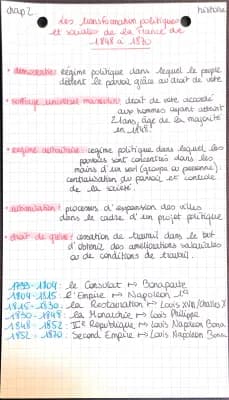 chap 2 histoire
les transformation politiques
et sociales de la France de
1848 à 1870
• démocratie: régime politique dans lequel le peuple
détient le pouvoir grâce au droit de vote
• suffrage universel masculin: droit de vote accordé
aux hommes ayant atteint
21ans, âge de la majorité
en 1848.
• régime autoritaire: régime politique dans lequel les
pouvoirs sont concentrés dans les
mains d'un seul (groupe ou personne).
centralisation du pouvoir et contrôle
de la société.
• urbanisation: processus d'expansion des villes
dans le cadre d'un projet politique
• droit de grève: cessation de travail dans le but
d'obtenir des améliorations salariales
ou de conditions de travail.
1799-1804: le Consulat ↦ Bonaparte
1804-1815: l'Empire ↦ Napoléon 1er
1815-1830: la Restauration ↦ Louis XVIII/Charles X
1830-1848: la Monarchie ↦ Louis Philippe
1848-1852: IIe République ↦ Louis Napoléon Bona
1852-1870: Second Empire ↦ Louis Napoléon Bona